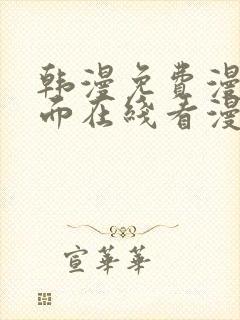 韩漫免费漫
而在线看漫
宣華華